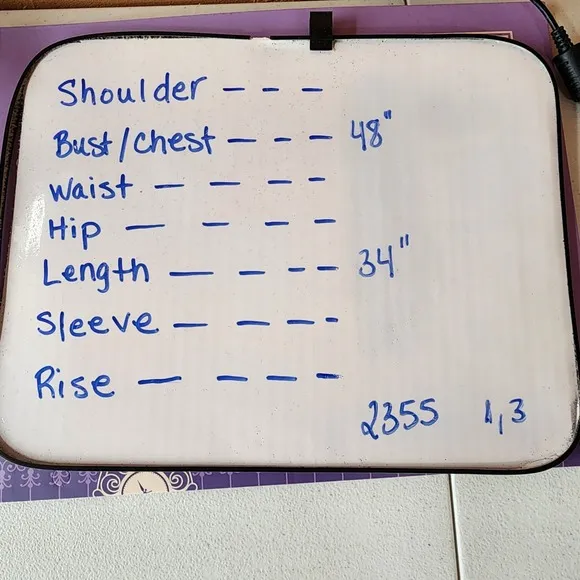 Shoulder - - -
Bust/Chest - - - 48"
Waist - - - -
Hip - - - -
Length - - - - 34"
Sleeve - - - -
Rise - - - -
2355 1,3